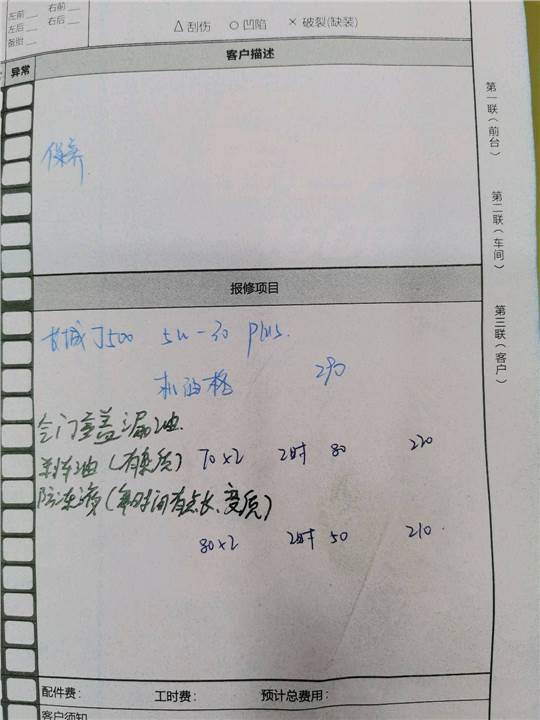 左前__ 右前__
左后__ 右后__
备胎__
△刮伤 ○凹陷 ×破裂(缺装)
异常
客户描述
保养
报修项目
长城J500 5W-30 Plus.
机油格 290
气门室盖漏油.
刹车油(有杂质) 70×2 工时 80 220
防冻液(年时间有点长、变质)
80×2 工时 50 210
配件费: 工时费: 预计总费用:
客户须知
第一联(前台)
第二联(车间)
第三联(客户)